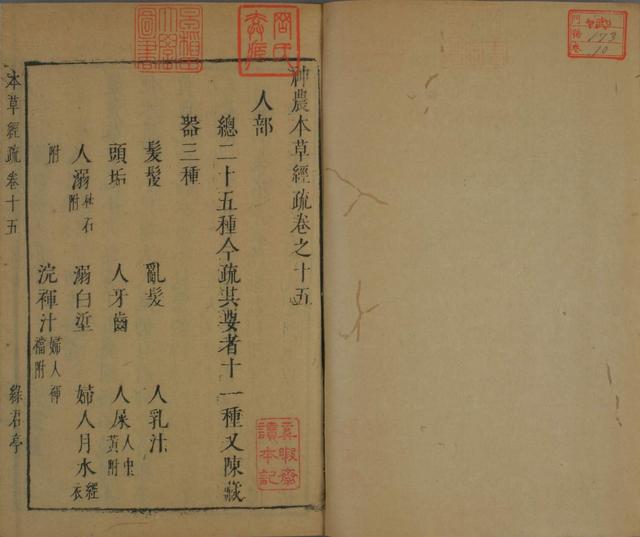 神農本草經疏卷之十五
人部
總二十五種今疏其要者十一種又陳藏
器三種
髮髲 亂髮 人乳汁
頭垢 人牙齒 人屎 人中黃附
人溺 秋石附 溺白垽 婦人月水 經衣
附 浣褌汁 婦人褌襠附
本草經疏卷十五 綠君亭
173
10